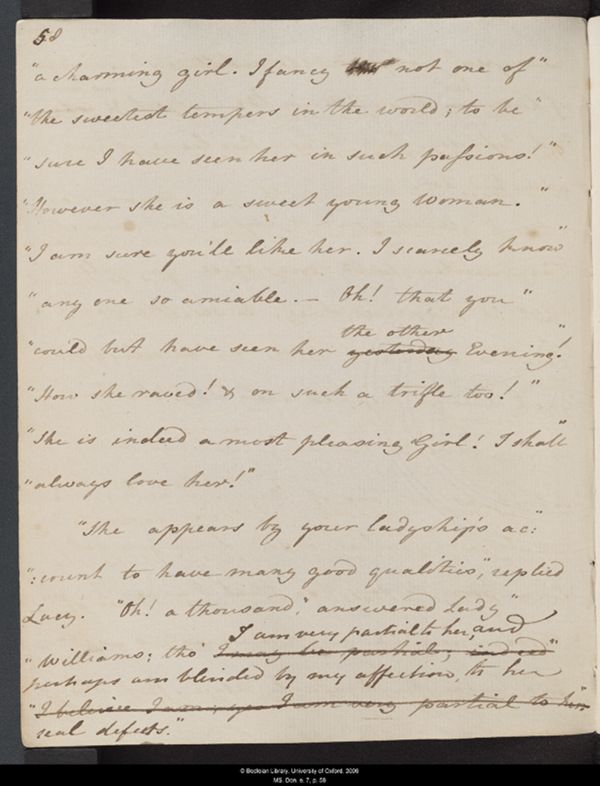 58
"a charming girl. I fancy not one of"
"the sweetest tempers in the world; to be"
"sure I have seen her in such passions!"
"However she is a sweet young Woman."
"I am sure you'll like her. I scarcely know"
"any one so amiable. — Oh! that you"
the other
"could but have seen her yesterday Evening!"
"How she raved! & on such a trifle too!"
"She is indeed a most pleasing Girl! I shall"
"always love her!"
"She appears by your ladyship's ac:
":count to have many good qualities", replied
Lucy. "Oh! a thousand," answered Lady"
I am very partial to her, and
"Williams; tho' I may be partial; indeed"
perhaps am blinded by my affection, to her
"I believe I am; yes I am very partial to her"
real defects."
© Bodleian Library, University of Oxford, 2006
MS. Don. e. 7, p. 58